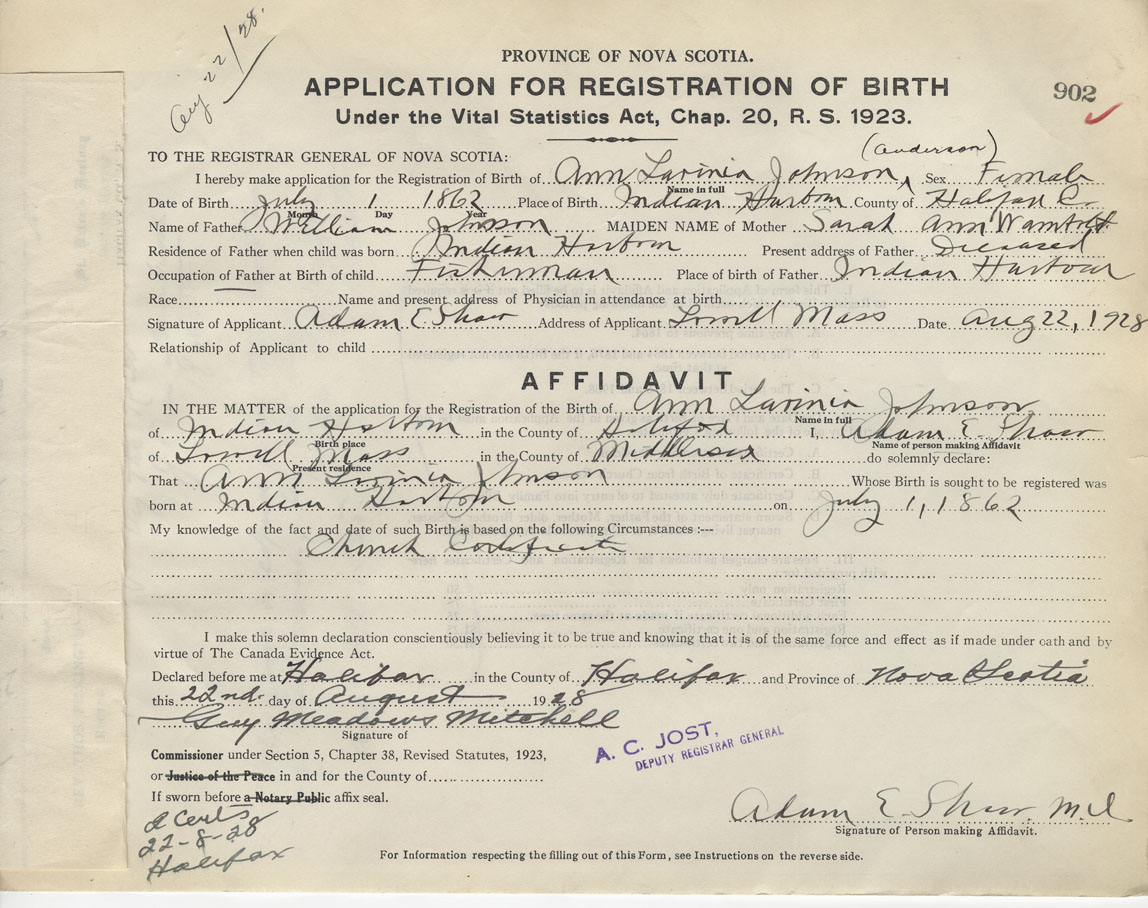 Aug 22/28.
PROVINCE OF NOVA SCOTIA.
APPLICATION FOR REGISTRATION OF BIRTH
902
Under the Vital Statistics Act, Chap. 20, R. S. 1923.
(Anderson)
TO THE REGISTRAR GENERAL OF NOVA SCOTIA:
I hereby make application for the Registration of Birth of Ann Lavinia Johnson, Sex Female
Name in full
Date of Birth July 1 1862 Place of Birth Indian Harbour County of Halifax Co.
Month Day Year
Name of Father William Johnson MAIDEN NAME of Mother Sarah Ann Wambolt
Residence of Father when child was born Indian Harbour Present address of Father Deceased
Occupation of Father at Birth of child Fisherman Place of birth of Father Indian Harbour
Race Name and present address of Physician in attendance at birth
Signature of Applicant Adam E Shaw Address of Applicant Lowell Mass Date Aug 22, 1928
Relationship of Applicant to child
AFFIDAVIT
IN THE MATTER of the application for the Registration of the Birth of Ann Lavinia Johnson
Name in full
of Indian Harbour in the County of Halifax I, Adam E. Shaw
Birth place Name of person making Affidavit
of Lowell Mass in the County of Middlesex do solemnly declare:
Present residence
That Ann Lavinia Johnson Whose Birth is sought to be registered was
born at Indian Harbour on July 1, 1862
My knowledge of the fact and date of such Birth is based on the following Circumstances :---
Church Certificate
I make this solemn declaration conscientiously believing it to be true and knowing that it is of the same force and effect as if made under oath and by
virtue of The Canada Evidence Act.
Declared before me at Halifax in the County of Halifax and Province of Nova Scotia
this 22nd. day of August 1928
Guy Meadows Mitchell
Signature of
Commissioner under Section 5, Chapter 38, Revised Statutes, 1923,
or Justice of the Peace in and for the County of
If sworn before a Notary Public affix seal.
A. C. JOST,
DEPUTY REGISTRAR GENERAL
Adam E. Shaw M.D.
Signature of Person making Affidavit.
2 Certs
22-8-28
Halifax
For Information respecting the filling out of this Form, see Instructions on the reverse side.